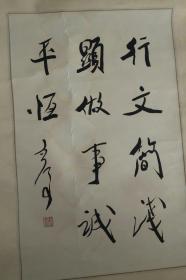 行文简浅
顯做事诚
平恒